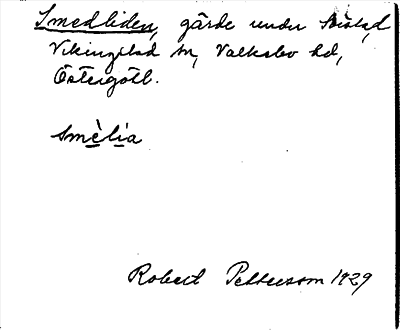 Smedliden, gärde under Skistad,
Vikingstad sn, Valkebo hd,
Östergötl.
Smèlia
Robert Pettersson 1929